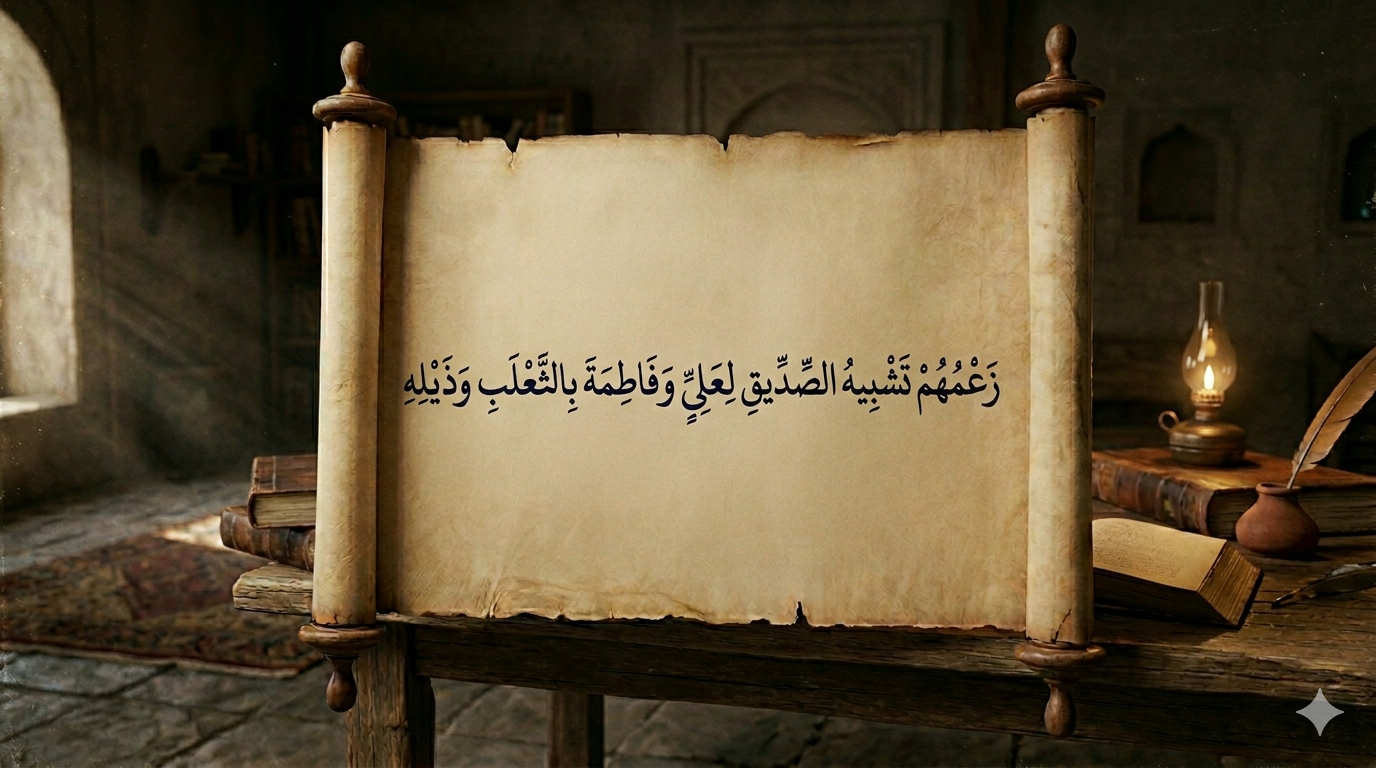 زَعْمُهُمْ تَشْبِيهُ الصِّدِّيقِ لِعَلِيٍّ وَفَاطِمَةَ بِالثَّعْلَبِ وَذَيْلِهِ